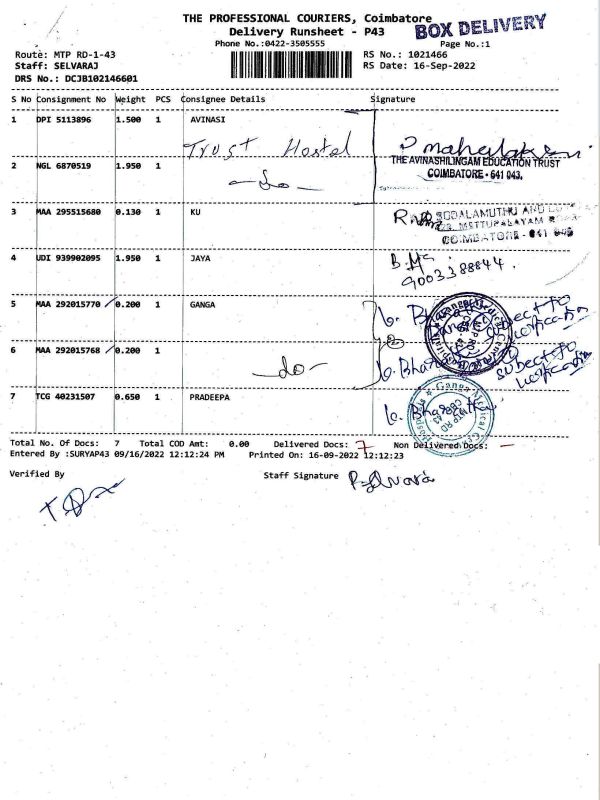 THE PROFESSIONAL COURIERS, Coimbatore
BOX DELIVERY
Delivery Runsheet - P43
Phone No.:0422-3505555
Page No.:1
Route: MTP RD-1-43
RS No.: 1021466
Staff: SELVARAJ
RS Date: 16-Sep-2022
DRS No.: DCJB102146601
S No Consignment No Weight PCS Consignee Details Signature
1 DPI 5113896 1.500 1 AVINASI
Trust Hostel
THE AVINASHILINGAM EDUCATION TRUST
COIMBATORE - 641 043.
2 NGL 6870519 1.950 1
-do-
3 MAA 295515680 0.130 1 KU
COIMBATORE - 641 043
4 UDI 939902095 1.950 1 JAYA
9003388844.
5 MAA 292015770 0.200 1 GANGA
subject to
verification
6 MAA 292015768 0.200 1
-do-
subect to
verification
7 TCG 40231507 0.650 1 PRADEEPA
Ganga Medical
MTP RD
CBE-43
Total No. Of Docs: 7 Total COD Amt: 0.00 Delivered Docs: 7 Non Delivered Docs: -
Entered By :SURYAP43 09/16/2022 12:12:24 PM Printed On: 16-09-2022 12:12:23
Verified By
Staff Signature